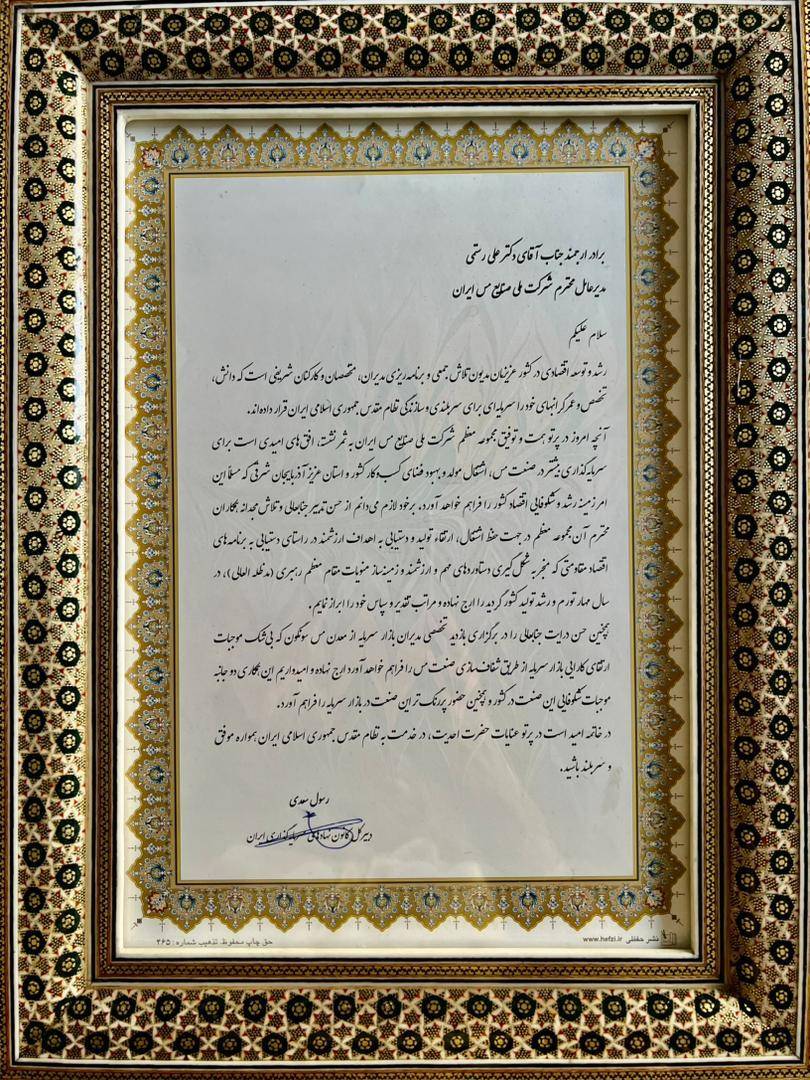 برادر ارجمند جناب آقای دکتر علی رستمی
مدیرعامل محترم شرکت ملی صنایع مس ایران
سلام علیکم
رشد و توسعه اقتصادی در کشور عزیزمان مدیون تلاش جمعی و برنامه‌ریزی مدیران، متخصصان و کارکنان شریفی است که دانش،
تخصص و عمر گرانبهای خود را سرمایه‌ای برای سربلندی و سازندگی نظام مقدس جمهوری اسلامی ایران قرار داده‌اند.
آنچه امروز در پرتو همت و توفیق مجموعه معظم شرکت ملی صنایع مس ایران به ثمر نشست، افق‌های امیدی است برای
سرمایه‌گذاری بیشتر در صنعت مس، اشتغال مولد و بهبود فضای کسب و کار کشور و استان عزیز آذربایجان شرقی که مسلماً این
امر زمینه رشد و شکوفایی اقتصاد کشور را فراهم خواهد آورد. بر خود لازم می‌دانم از حسن تدبیر جنابعالی و تلاش مجدانه همکاران
محترم آن مجموعه معظم در جهت حفظ اشتغال، ارتقاء تولید و دستیابی به اهداف ارزشمند در راستای دستیابی به برنامه‌های
اقتصاد مقاومتی که منجر به شکل‌گیری دستاوردهای مهم و ارزشمند و زمینه‌ساز منویات مقام معظم رهبری (مدظله العالی)، در
سال مهار تورم و رشد تولید کشور گردید را ارج نهاده و مراتب تقدیر و سپاس خود را ابراز نمایم.
همچنین حسن درایت جنابعالی را در برگزاری بازدید تخصصی مدیران بازار سرمایه از معدن مس سونگون که بی‌شک موجبات
ارتقای کارایی بازار سرمایه از طریق شفاف‌سازی صنعت مس را فراهم خواهد آورد ارج نهاده و امیدواریم این همکاری دو جانبه
موجبات شکوفایی این صنعت در کشور و همچنین حضور پررنگ‌تر این صنعت در بازار سرمایه را فراهم آورد.
در خاتمه امید است در پرتو عنایات حضرت احدیت، در خدمت به نظام مقدس جمهوری اسلامی ایران همواره موفق
و سربلند باشید.
رسول سعدی
دبیرکل کانون نهادهای سرمایه‌گذاری ایران
نشر حفظی www.hefzi.ir
حق چاپ محفوظ. تذهیب شماره: ۲۶۵